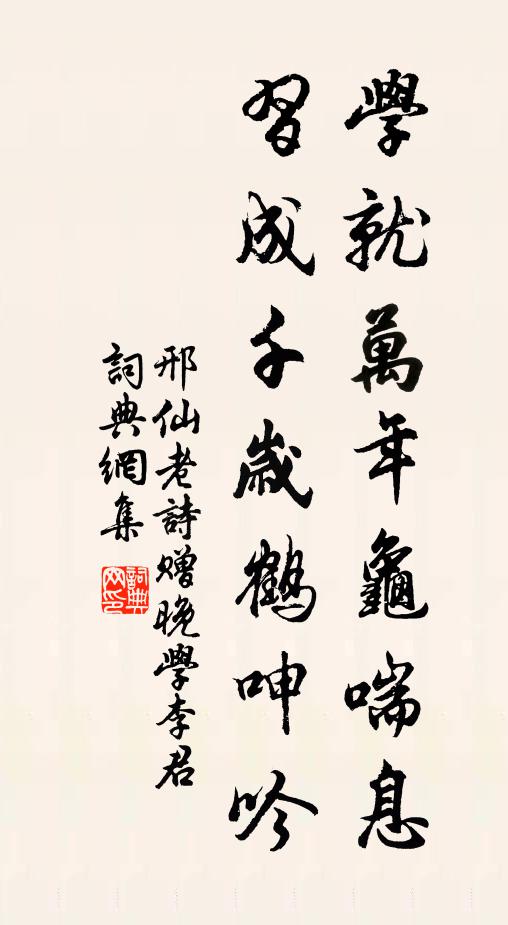 學就萬年龜喘息
習成千歲鶴呻吟
邢仙老詩贈晚學李君
詞典網集
詞典
网印